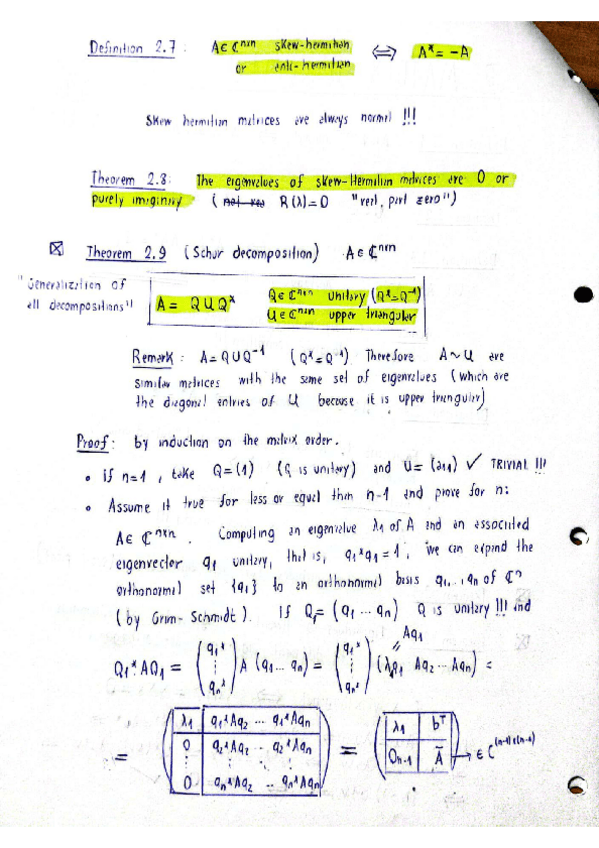 Definition 2.7 : A∈ℂⁿˣⁿ skew-hermitian or anti-hermitian ⟺ A* = -A
Skew hermitian matrices are always normal !!!
Theorem 2.8: The eigenvalues of skew-Hermitian matrices are 0 or
purely imaginary ( R(λ)=0 "real part zero")
☒ Theorem 2.9 (Schur decomposition) A∈ℂⁿˣⁿ
"Generalization of
all decompositions"
A = QUQ* Q∈ℂⁿˣⁿ unitary (Q*=Q⁻¹)
U∈ℂⁿˣⁿ upper triangular
Remark : A=QUQ⁻¹ (Q*=Q⁻¹) Therefore A~U are
similar matrices with the same set of eigenvalues (which are
the diagonal entries of U because it is upper triangular)
Proof: by induction on the matrix order.
• if n=1, take Q=(1) (Q is unitary) and U=(a11) ✓ TRIVIAL !!!
• Assume it true for less or equal than n-1 and prove for n:
A∈ℂⁿˣⁿ. Computing an eigenvalue λ1 of A and an associated
eigenvector q1 unitary, that is, q1*q1=1, we can expand the
orthonormal set {q1} to an orthonormal basis q1...qn of ℂⁿ
(by Gram-Schmidt). If Q1=(q1 ... qn) Q is unitary !!! and
Aq1
Q1*AQ1 = (q1* ⋮ qn*) A (q1 ... qn) = (q1* ⋮ qn*) (λ1q1 Aq2 ... Aqn) =
= ( λ1 q1*Aq2 ... q1*Aqn
0 q2*Aq2 ... q2*Aqn
⋮ ⋮ ⋱ ⋮
0 qn*Aq2 ... qn*Aqn ) = ( λ1 bᵀ
0n-1 Ā ) → ∈ ℂ⁽ⁿ⁻¹⁾ˣ⁽ⁿ⁻¹⁾